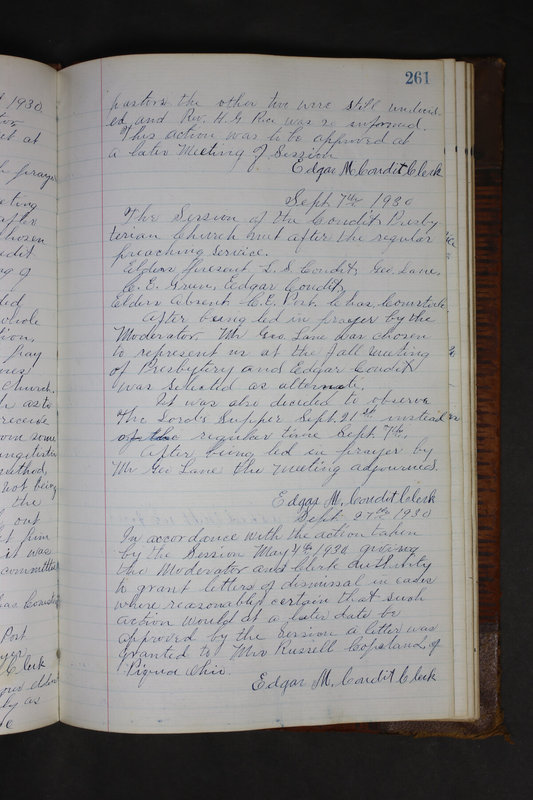 261
pastors the other two were still undecid-
ed and Rev. H. G. Rice was so informed.
This action was to be approved at
a later Meeting of Session
Edgar M. Condit Clerk
Sept 7th 1930
The Session of the Condit Presby-
terian Church met after the regular
preaching service.
Elders present L. S. Condit, Geo. Lane,
C. E. Edgar Condit,
Elders absent C. E. Post. Chas.
After being led in prayer by the
Moderator, Mr Geo. Lane was chosen
to represent us at the fall meeting
of Presbytery and Edgar Condit
was selected as alternate.
It was also decided to observe
The Lord's Supper Sept. 21st instead
of the regular time Sept. 7th.
After being led in prayer by
Mr Geo Lane the meeting adjourned.
Edgar M. Condit Clerk
Sept 27th 1930
In accordance with the action taken
by the Session May 4th 1930 giving
the Moderator and Clerk authority
to grant letters of dismissal in cases
where reasonably certain that such
action would at a later date be
approved by the Session a letter was
granted to Mrs Russell Copeland, of
Piqua Ohio.
Edgar M. Condit Clerk